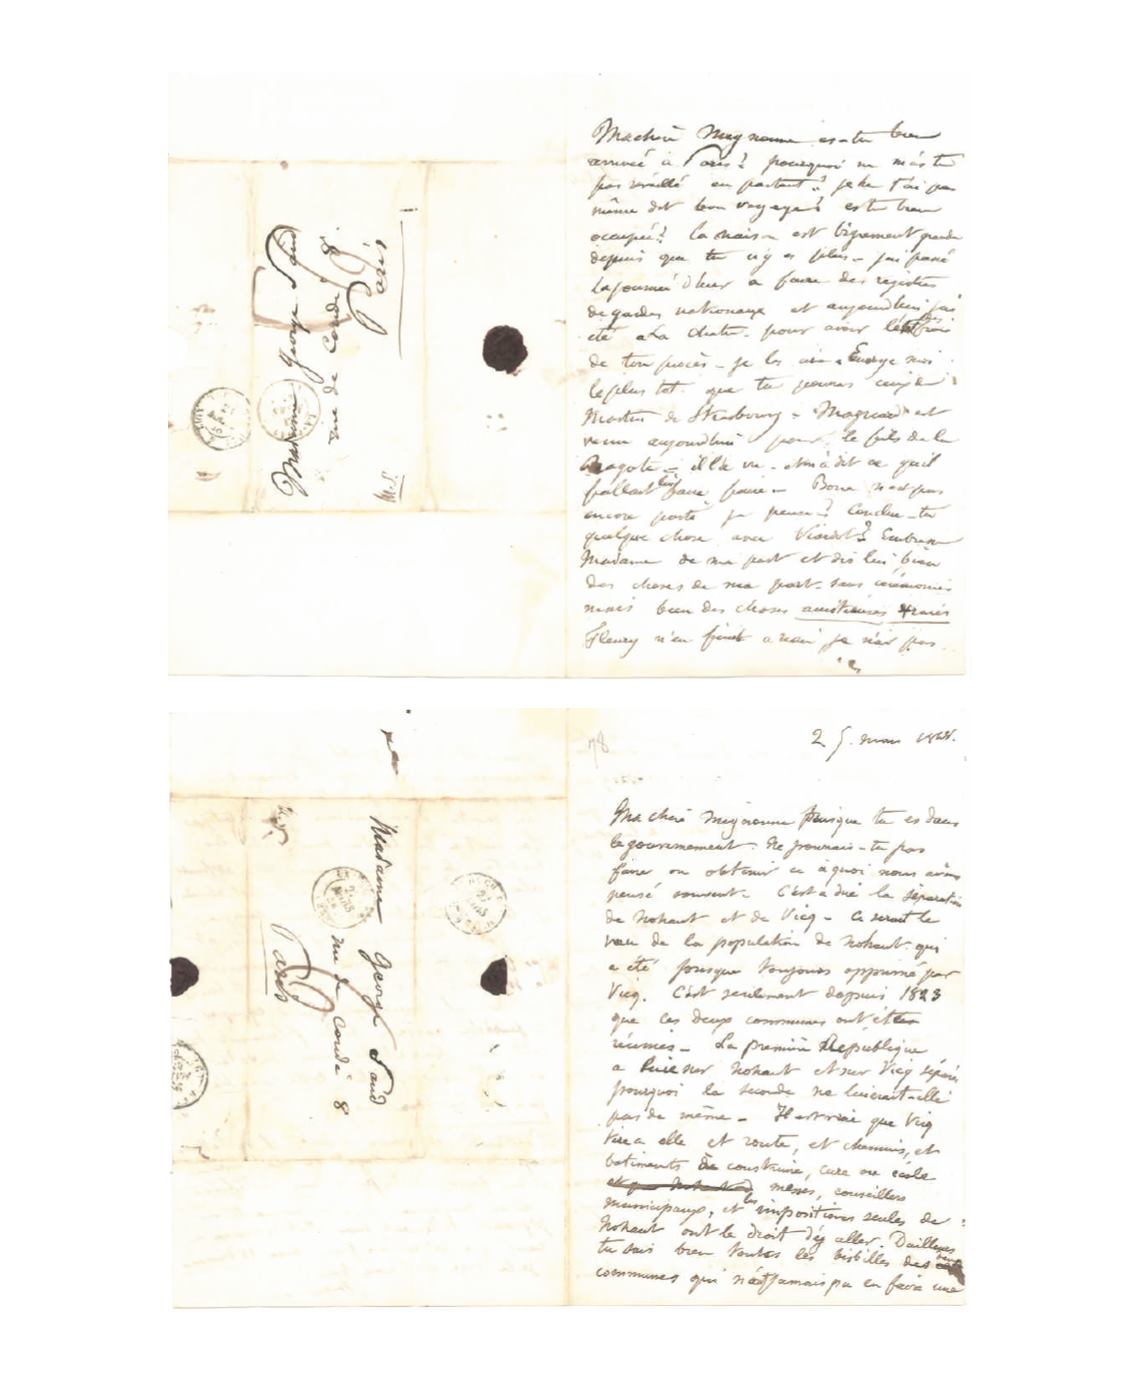 Madame George Sand
rue de Condé 8.
Paris
Ma chère Mignonne es-tu bien
arrivée à Paris? pourquoi ne m'as tu
pas éveillé en partant? je ne t'ai pas
même dit bon voyage? es tu bien
occupée? la maison est bigrement grande
depuis que tu n'y es plus - j'ai passé
la journée d'hier a faire des registres
de gardes nationaux et aujourdhui j'ai
été a La chatre pour avoir les
de ton procès - je les Envoye moi
le plus tot que tu pourras ceux de
Martin de Strasbourg - est
venu aujourdhui pour le fils de la
il l'a vu - et m'a dit ce qu'il
fallait lui faire faire - n'est pas
encore parti je pense? Conclue-tu
quelque chose avec Viardot? Embrasse
Madame de ma part et dis lui bien
des choses de ma part - sans cérémonies
mais bien des choses
Fleury n'en finit a rien je n'ai pas
78
25. mars 1848.
Madame George Sand
rue de Condé 8
Paris
Ma chère mignonne puisque tu es dans
le gouvernement. Ne pourrais-tu pas
faire ou obtenir ce à quoi nous avions
pensé souvent. C'est a dire la séparation
de Nohant et de Vicq - Ce serait le
vœu de la population de Nohant qui
a été presque toujours opprimé par
Vicq. C'est seulement depuis 1823
que ces deux communes ont été
réunies - La première République
a sur Nohant et sur Vicq séparés
pourquoi la seconde ne luirait-elle
pas de même - Il est vrai que Vicq
tire a elle et route, et chemins, et
batiments de construire, cure ou école
messes, conseillers
municipaux, et les impositions seules de
Nohant ont le droit d'éy aller. D'ailleurs
tu sais bien toutes les bisbilles des deux
communes qui n'ont jamais pu en faire une